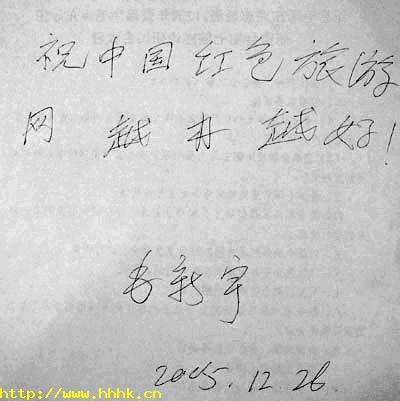 祝中国红色旅游
网 越办越好!
新宇
2005.12.26
http://www.hhhk.cn